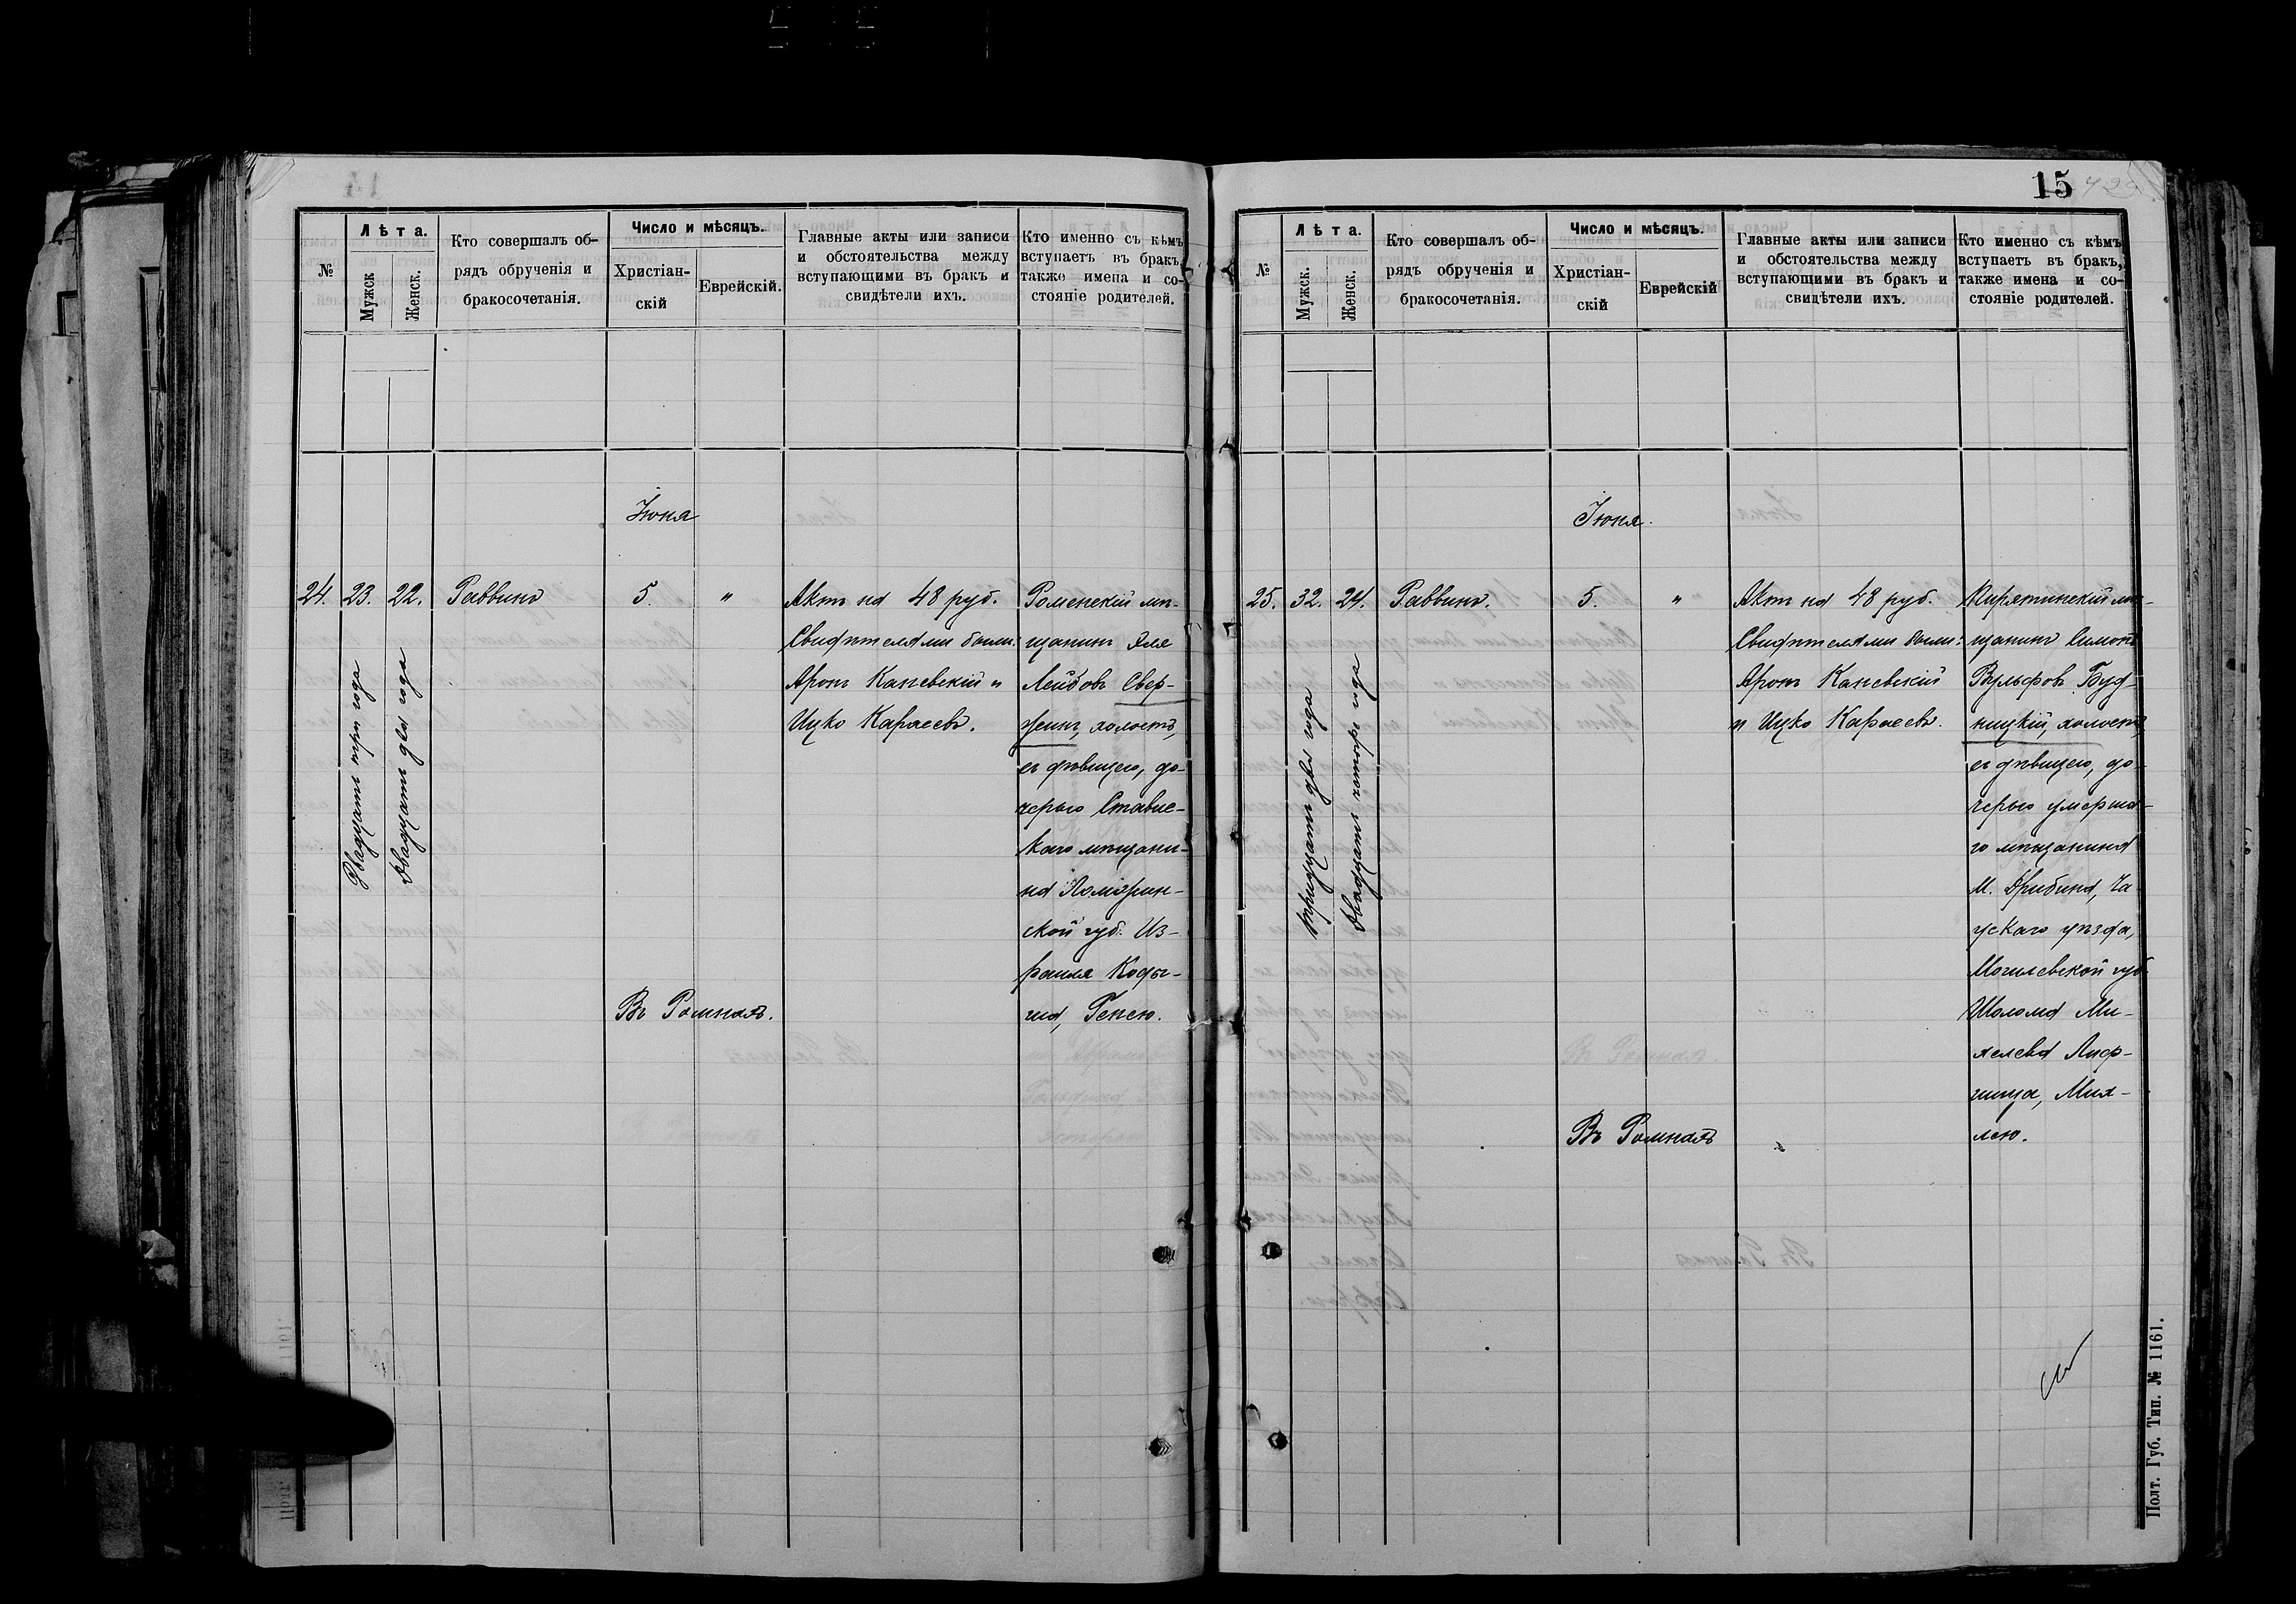 №
Лѣта.
Мужск
Женск.
Кто совершалъ об-
рядъ обрученія и
бракосочетанія.
Число и мѣсяцъ.
Христіан-
скій
Еврейскій.
Главные акты или записи
и обстоятельства между
вступающими въ бракъ и
свидѣтели ихъ.
Кто именно съ кѣмъ
вступаетъ въ бракъ,
также имена и со-
стояніе родителей.
Іюня
24.
23.
Двадцать три года
22.
Двадцать два года
Раввинъ
5.
"
Въ Ромнахъ.
Актъ на 48 руб.
Свидѣтелями были:
Аронъ Каневскій и
Ицко Караевъ.
Роменскій мѣ-
щанинъ Эля
Лейбовъ Свер-
жинъ, холостъ,
съ дѣвицею, до-
черью Ставис-
каго мѣщани-
на Ломжин-
ской губ. Из-
раиля
Генею.
15
№
Лѣта.
Мужск.
Женск.
Кто совершалъ об-
рядъ обрученія и
бракосочетанія.
Число и мѣсяцъ.
Христіан-
скій
Еврейскій
Главные акты или записи
и обстоятельства между
вступающими въ бракъ и
свидѣтели ихъ.
Кто именно съ кѣмъ
вступаетъ въ бракъ,
также имена и со-
стояніе родителей.
Іюня
25.
32.
тридцать два года
24.
Двадцать четыре года
Раввинъ.
5.
"
Въ Ромнахъ
Актъ на 48 руб.
Свидѣтелями были:
Аронъ Каневскій
и Ицко Караевъ.
Пирятинскій мѣ-
щанинъ Симонъ
Вульфовъ Буд-
ницкій, холостъ,
съ дѣвицею, до-
черью умерша-
го мѣщанина
м. Дрибина, Ча-
усскаго уѣзда,
Могилевской губ.
Шолома Ми-
хелева Лиф-
шица, Мих-
лею.
Полт. Губ. Тип. № 1161.